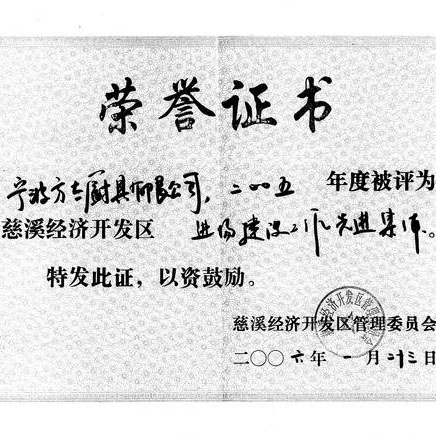 荣誉证书
宁波方太厨具有限公司,二〇〇五 年度被评为
慈溪经济开发区 进场建设工作先进集体。
特发此证,以资鼓励。
慈溪经济开发区管理委员会
二〇〇六年一月二十三日